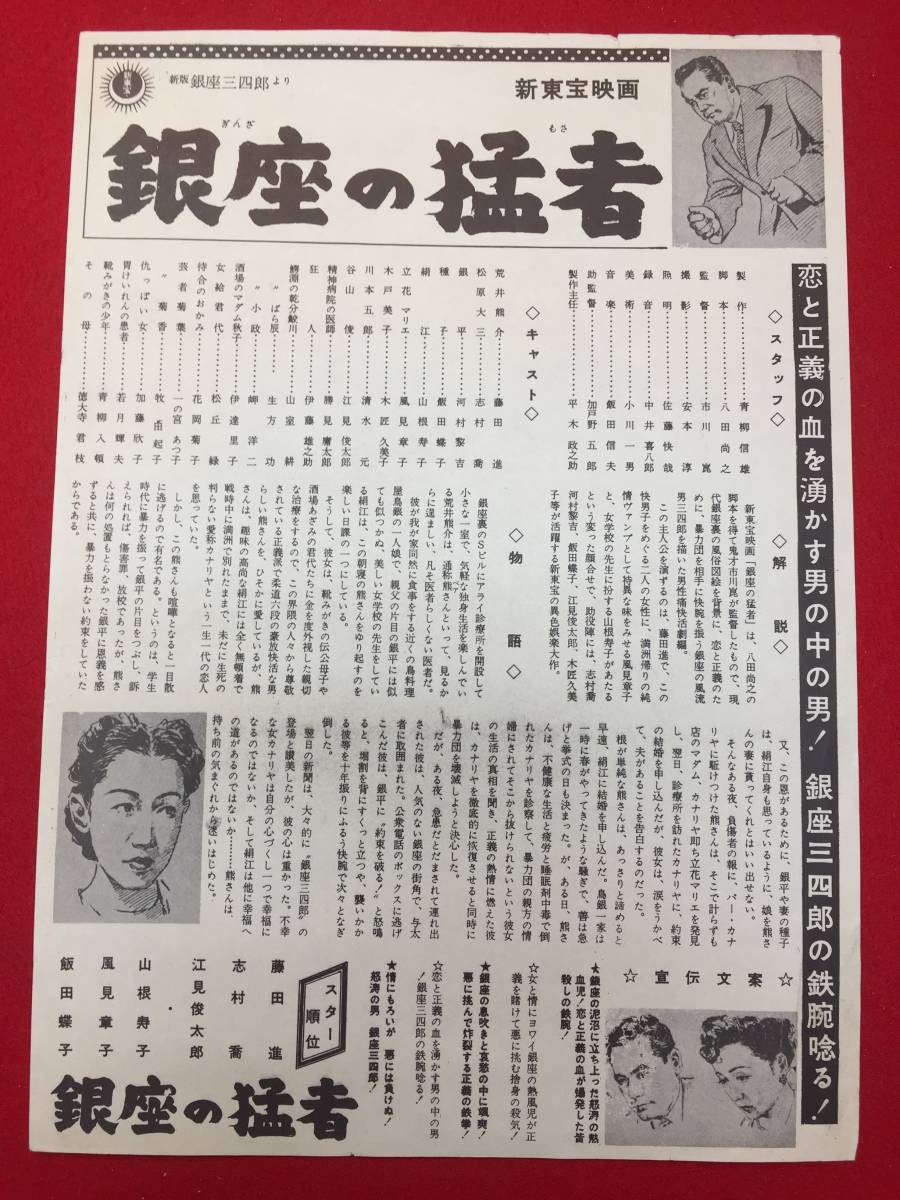 新版 銀座三四郎より
新東宝映画
ぎんざ
もさ
銀座の猛者
恋と正義の血を湧かす男の中の男! 銀座三四郎の鉄腕唸る!
◇スタッフ◇
製作………青柳信雄
脚本………八田尚之
監督………市川崑
撮影………安本淳
照明………佐藤快哉
録音………中井喜八郎
美術………小川一男
音楽………飯田信夫
助監督………加戸野五郎
製作主任………平木政之助
◇キャスト◇
荒井熊介………藤田進
松原大三………志村喬
銀平………河村黎吉
種子………飯田蝶子
絹江………山根寿子
立花マリエ………風見章子
木戸美子………木匠久美子
川本五郎………清水元
谷山俊………江見俊太郎
精神病院の医師………勝見庸太郎
狂人………伊藤雄之助
鰐淵の乾分鮫川………山室耕
〃ばら辰………生方功
〃小政………岬洋二
酒場のマダム秋子………伊達里子
女給君代………松丘緑
待合のおかみ………花岡菊子
芸者菊葉………一の宮あつ子
〃菊香………牧由起子
仇っぽい女………加藤欣子
胃けいれんの患者………若月輝夫
靴みがきの少年………青柳入頓
その母………徳大寺君枝
◇解説◇
新東宝映画「銀座の猛者」は、八田尚之の
脚本を得て鬼才市川崑が監督したもので、現
代銀座裏の風俗図絵を背景に、恋と正義のた
めに、暴力団を相手に快腕を振う銀座の風流
男三四郎を描いた男性痛快活劇編。
この主人公を演ずるのは、藤田進で、この
快男子をめぐる二人の女性に、満洲帰りの純
情ヴァンプとして特異な味をみせる風見章子
と、女学校の先生に扮する山根寿子があたる
という変った顔合せで、助役陣には、志村喬
河村黎吉、飯田蝶子、江見俊太郎、木匠久美
子等が活躍する新東宝の異色娯楽大作。
◇物語◇
銀座裏のSビルにアライ診療所を開設して
小さな一室で、気軽な独身生活を楽しんでい
る荒井熊介は、通称熊さんといって、見るか
らに逞ましい、凡そ医者らしくない医者だ。
彼が我が家同然に食事をする近くの鳥料理
屋鳥銀の一人娘で、親父の片目の銀平には似
ても似つかぬ、美しい女学校の先生をしてい
る絹江は、この朝寝の熊さんをゆり起すのを
楽しい日課の一つにしている。
そうして、彼女は、靴みがきの伝公母子や
酒場あざみの君代たちに金を度外視した親切
な治療をするので、この界隈の人々から尊敬
されている正義派で柔道六段の豪放快活な男
らしい熊さんを、ひそかに愛しているが、熊
さんは、趣味の高尚な絹江には全く無頓着で
戦時中に満洲で別れたままで、未だに生死の
判らない愛称カナリヤという一生一代の恋人
を思っていた。
しかし、この熊さんも喧嘩となると一目散
に逃げるので有名である。というのは、学生
時代に暴力を振って銀平の片目をつぶし、訴
えられれば、傷害罪、放校であったが、熊さ
んは何の処置もとらなかった銀平に恩義を感
ずると共に、暴力を振わない約束をしていた
からである。
又、この恩があるために、銀平や妻の種子
は、絹江自身も思っているように、娘を熊さ
んの妻に貰ってくれとはいい出せない。
そんなある夜、負傷者の報に、バー・カナ
リヤに駈けつけた熊さんは、そこで計らずも
店のマダム、カナリヤ即ち立花マリエを発見
し、翌日、診療所を訪れたカナリヤに、約束
の結婚を申し込んだが、彼女は、涙をうかべ
て、夫があることを告白するのだった。
根が単純な熊さんは、あっさりと諦めると
早速、絹江に結婚を申し込んだ。鳥銀一家は
一時に春がやってきたような騒ぎで、善は急
げと挙式の日も決まった。が、ある日、熊さ
んは、不健康な生活と疲労と睡眠剤中毒で倒
れたカナリヤを診察して、暴力団の親方の情
婦にされてそこから抜けられないという彼女
の生活の真相を聞き、正義の熱情に燃えた彼
は、カナリヤを徹底的に恢復させると同時に
暴力団を壊滅しようと決心した。
だが、ある夜、急患だとだまされて連れ出
された彼は、人気のない銀座の街角で、与太
者に取囲まれた。公衆電話のボックスに逃げ
こんだ彼は、銀平に〝約束を破る!〟と怒鳴
ると、堀割を背にすくっと立つや、襲いかか
る彼等を十年振りにふるう快腕で次々となぎ
倒した。
翌日の新聞は、大々的に〝銀座三四郎〟の
登場と讃美したが、彼の心は重かった。不幸
な女カナリヤは自分の心づくし一つで幸福に
なるのではないか、そして絹江は他に幸福へ
の道があるのではないか………熊さんは、
持ち前の気まぐれから迷いはじめた。
☆宣伝文案☆
★銀座の泥沼に立ち上った怒濤の熱
血児!恋と正義の血が爆発した皆
殺しの鉄腕!
☆女と情にヨワイ銀座の熱風児が正
義を賭けて悪に挑む捨身の殺気!
★銀座の息吹きと哀愁の中に颯爽!
悪に挑んで炸裂する正義の鉄拳!
☆恋と正義の血を湧かす男の中の男
!銀座三四郎の鉄腕唸る!
★情にもろいが 悪には負けぬ!
怒濤の男 銀座三四郎!
スター順位
藤田進
志村喬
江見俊太郎
・
山根寿子
風見章子
飯田蝶子
銀座の猛者